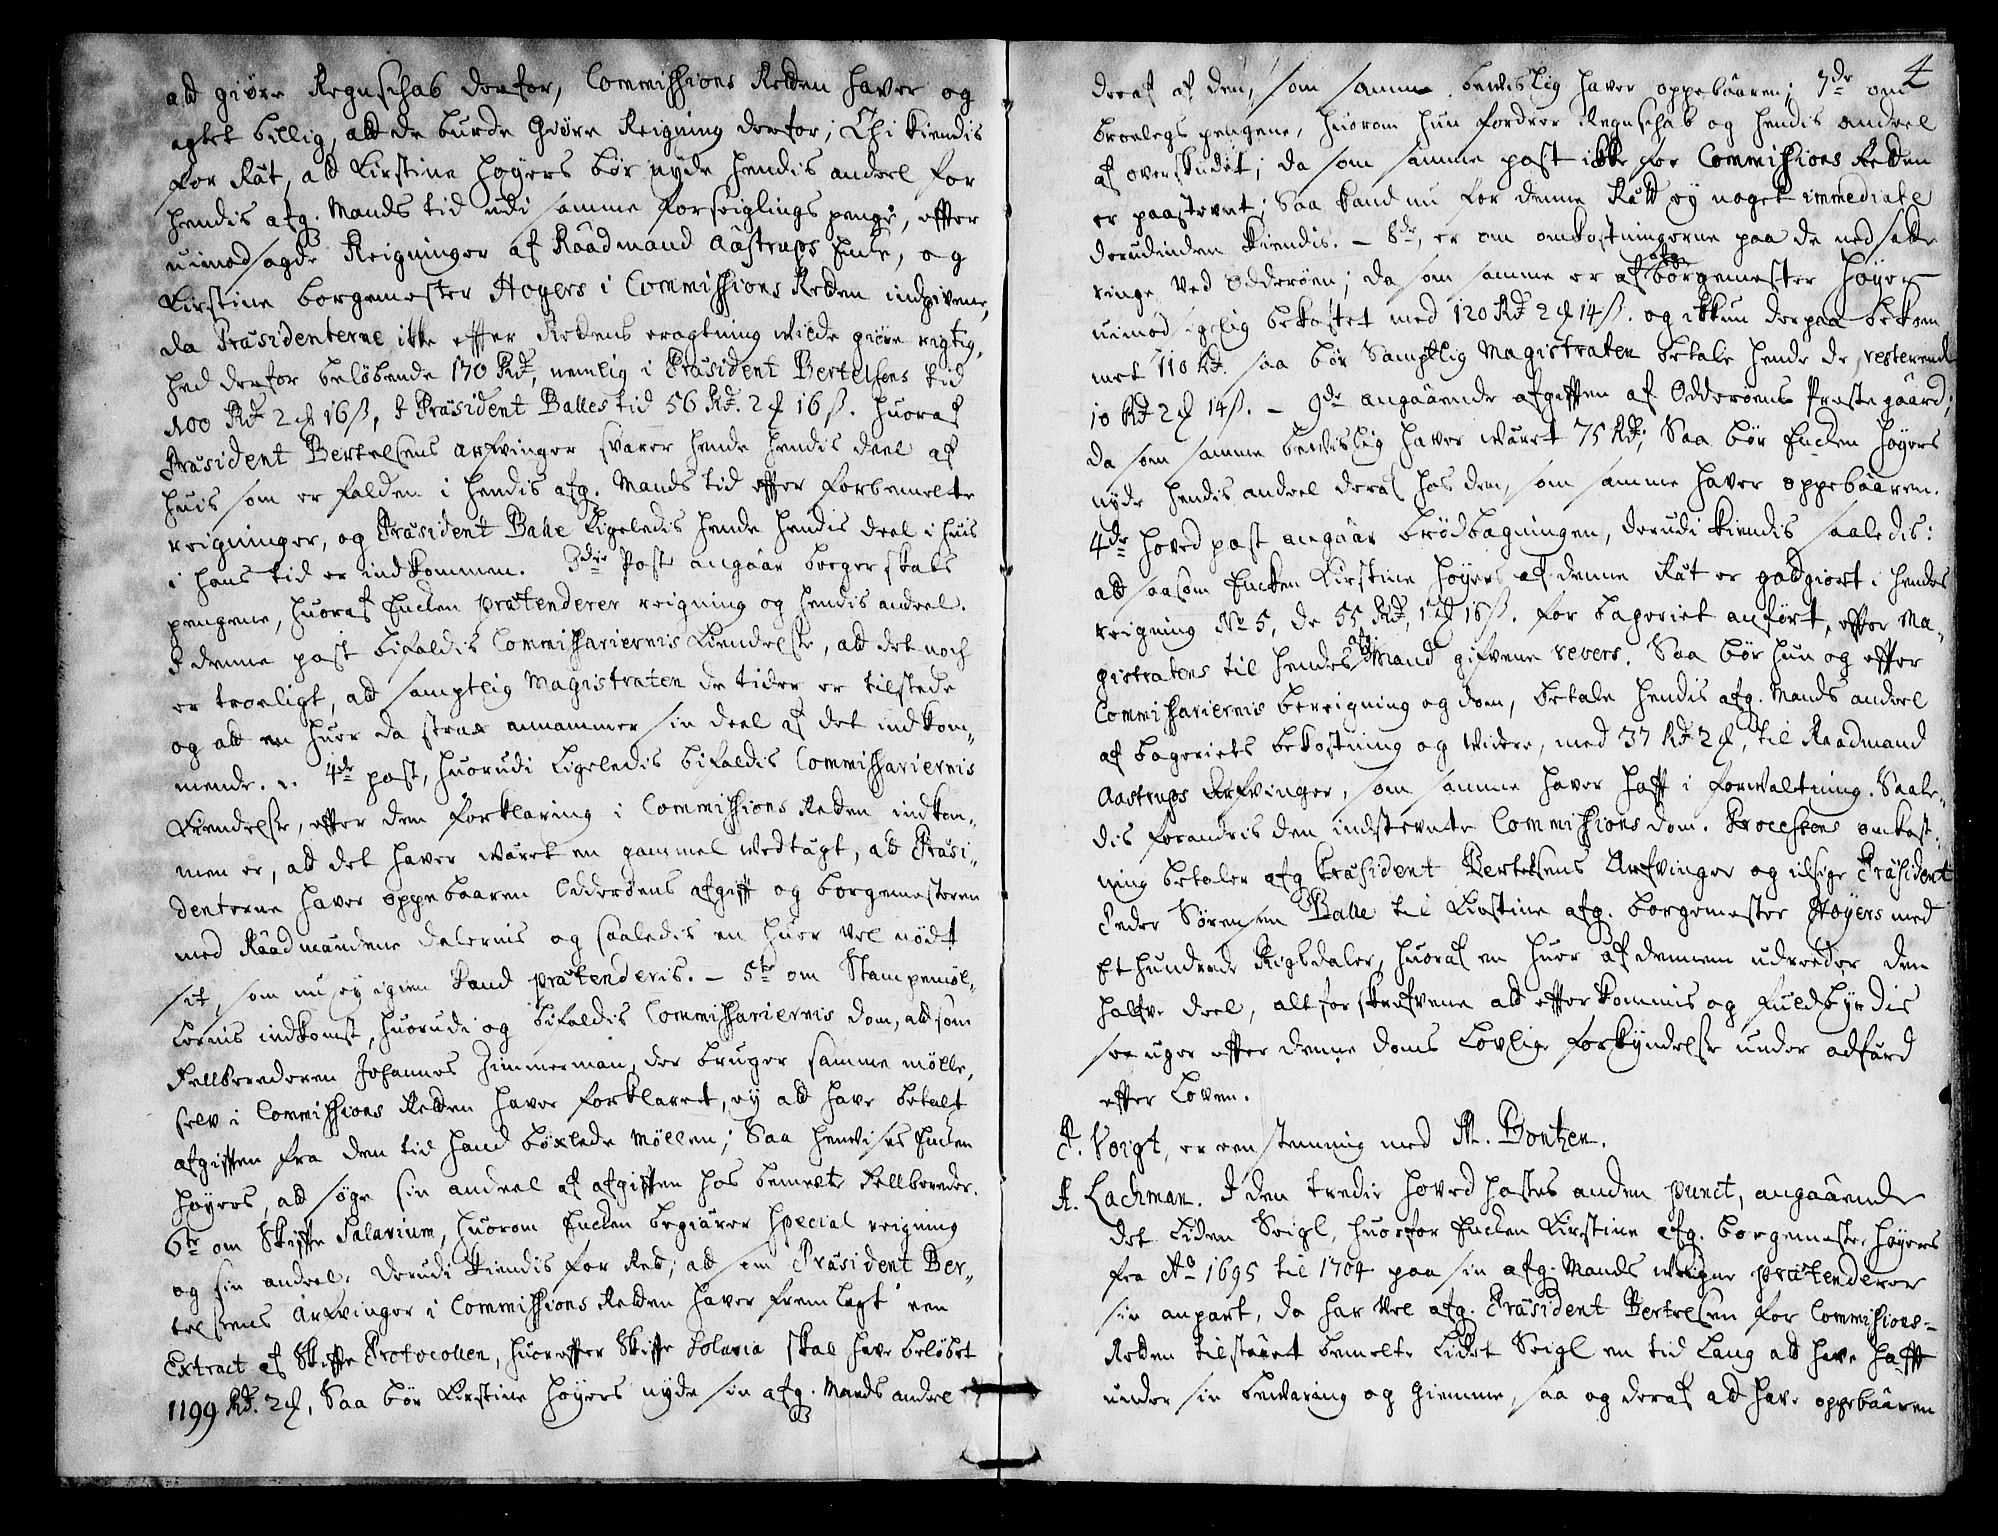 ald giöre Regnschab derfor, Commissions Retten haver og
agtet billig, att de burde Giöre Reigning derfor; Thi kiendis
for Rät, ald Kirstine Høyers bör nyde hendis andeel for
hendis afg. Mands tid udi samme forseiglings penge, effter
uimodsagde Reigninger af Räadmand Aästrups Encke, og
Kirstine borgemester Høyers i Commissions Retten indgivene,
da Præsidenterne ikke effter Rettens eragtning wilde giöre rigtig,
hed derfor belöbende 170 Rdr, nemlig i Præsident Bertelsens tid
100 Rdr 2 ₰ 16 ß, I Præsident Balles tid 56 Rdr. 2 ₰ 16 ß. huoraf
Præsident Bertelsens arfvinger svarer hende hendis deel af
huis som er falden i hendis afg. Mands tid effter forbemelte
reigninger, og Præsident Balle ligeledis hende hendis deel i huis
i hans tid er indkommen. 3die Post angäar borgerskabs
pengene, huoraf Encken prætenderer reigning og hendis andeel.
I denne post bifaldis Commissariernis Kiendelse, ald det noch
er troeligt, ald samptlig Magistraten de tider er tilstede
og ald en huer da strax annammer sin deel af det indkom,
mende. 4de post, huorudi ligeledis bifaldis Commissariernis
Kiendelse, effter den forklaring i Commissions Retten indkom,
men er, ald det haver wäret en gammel wedtägt, ald Præsi,
denterne haver oppebaaren Odderöens afgifft og borgemesteren
med Räadmændene delernis og saaledis en huer vel nödt
sit, som nu ey igien kand prætenderis. - 5te om Stampemöl,
lernis indkomst, huorudi og bifaldis Commissariernis dom, ald som
Fellberederen Johannes Zimmerman, der bruger samme mölle,
selv i Commissions Retten haver forklaret, ey ald have betalt
afgifften fra den tid hand böxlede Möllen; Saa henvises Encken
Høyers, ald söge sin andeel af afgifften hos bemelte Fellbereder.
6te om Skiffte Salarium, huorom Encken begiärer special reigning
og sin andeel. derudi kiendis for Ret; ald som Præsident Ber,,
telsens Arfvinger i Commissions Retten haver fremlagt een
Extract af Skiffte Protocollen, huoreffter Skiffte Solaria skal have belöbet
1199 Rdr. 2 ₰, Saa bör Kirstine Høyers nyde sin afg. Mands andeel
4
deraf af den, som samme bevislig haver oppebäaren; 7de om
broelegs pengene, huorom hun fordrer Regnschab og hendis andeel
af overskudet; da som samme post ikke for Commissions Retten
er paastevnt; Saa kand nu for denne Rätt ey noget immediate
derudinden kiendis. - 8de, er om omkostningerne paa de nedsatte
ringe ved Odderöen; da som samme er af afg. borgemester Høyer
uimodsigelig bekostet med 120 Rdr 2 ₰ 14 ß. og ikkun derpaa bekom
met 110 Rdr. saa bör Samptlig Magistraten betale hende de resterende
10 Rdr 2 ₰ 14 ß. - 9de angäaende afgifften af Odderöens Præstegäard;
da som samme bevislig haver wäret 75 Rdr; Saa bör Encken Høyers
nyde hendis andeel deraf hos dem, som samme haver oppebäaren.
4de hoved post angäar brödbagningen, derudi kiendis saaledis:
ald saasom Encken Kirstine Høyers af denne Rät er godgiort i hendes
reigning No 5, de 55 Rdr, 1 ₰ 16 ß. for bageriet anfört, effter Ma,
gistratens til hendes afg. Mand gifvene revers. Saa bör hun og effter
Commissariernis bereigning og dom, betale hendis afg. Mands andeel
af bageriets bekostning og widere, med 37 Rdr 2 ₰, til Raadmand
Aastrups Arfvinger, som samme haver hafft i forwaltning. Saale,
dis forandris den indstevnte Commissions dom. Processens omkost,
ning betaler afg Præsident Bertelsens Arfvinger og ilsige Præsident
Peder Sörensen Balle til Kirstine afg. borgemester Høyers med
Et hundrede Rigsdaler, huoraf en huer af dennem udreder den
halfve deel, alt forskrefvene ald efterkommis og fuldbyrdis
sex uger effter denne doms lovlige forkyndelse under adfärd
effter Loven.
P. Voigt, er eenstemmig med M. Bontzen.
A. Lachman. I den tredie hoved postes anden punct, angäaende
det liden Seigl, huorfor Encken Kirstine afg. borgemester Høyers
fra Ao 1695 til 1704 paa sin afg. Mands weigne prætenderer
sin anpart, da har vel afg. Præsident Bertelsen for Commissions-
Retten tilstäaet bemelte lidet Seigl en tid lang ald have hafft
under sin bewaring og giemme, saa og deraf ald have oppebäaren